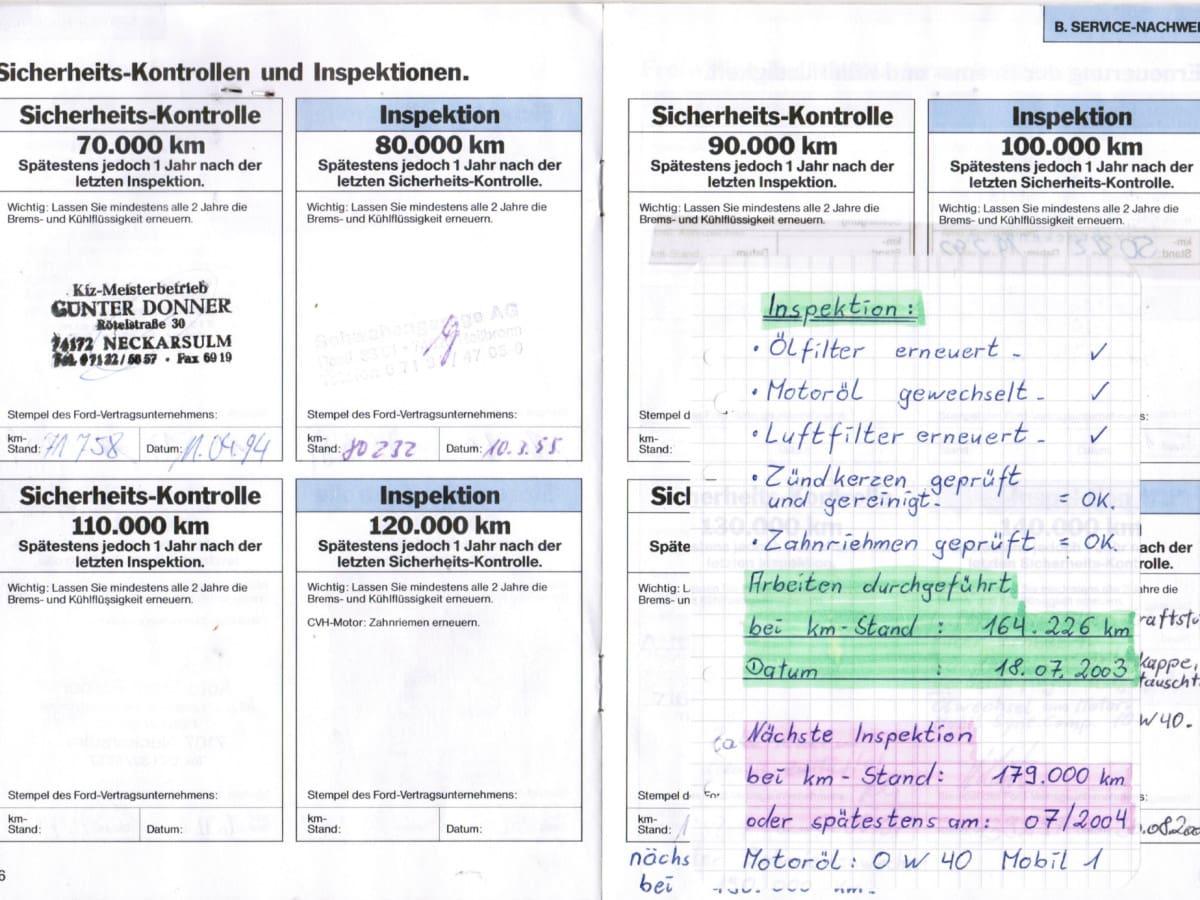 B. SERVICE-NACHWEI
Sicherheits-Kontrollen und Inspektionen.
Sicherheits-Kontrolle
70.000 km
Spätestens jedoch 1 Jahr nach der
letzten Inspektion.
Wichtig: Lassen Sie mindestens alle 2 Jahre die
Brems- und Kühlflüssigkeit erneuern.
Kfz-Meisterbetrieb
GÜNTER DONNER
Rötelstraße 30
74172 NECKARSULM
Tel. 07132/6657 · Fax 6919
Stempel des Ford-Vertragsunternehmens:
km-
Stand: 71 758 Datum: 11.04.94
Inspektion
80.000 km
Spätestens jedoch 1 Jahr nach der
letzten Sicherheits-Kontrolle.
Wichtig: Lassen Sie mindestens alle 2 Jahre die
Brems- und Kühlflüssigkeit erneuern.
Stempel des Ford-Vertragsunternehmens:
km-
Stand: 80232 Datum: 10.3.95
Sicherheits-Kontrolle
90.000 km
Spätestens jedoch 1 Jahr nach der
letzten Inspektion.
Wichtig: Lassen Sie mindestens alle 2 Jahre die
Brems- und Kühlflüssigkeit erneuern.
Stempel d
km-
Stand:
Inspektion
100.000 km
Spätestens jedoch 1 Jahr nach der
letzten Sicherheits-Kontrolle.
Wichtig: Lassen Sie mindestens alle 2 Jahre die
Brems- und Kühlflüssigkeit erneuern.
Sicherheits-Kontrolle
110.000 km
Spätestens jedoch 1 Jahr nach der
letzten Inspektion.
Wichtig: Lassen Sie mindestens alle 2 Jahre die
Brems- und Kühlflüssigkeit erneuern.
Stempel des Ford-Vertragsunternehmens:
km-
Stand: Datum:
Inspektion
120.000 km
Spätestens jedoch 1 Jahr nach der
letzten Sicherheits-Kontrolle.
Wichtig: Lassen Sie mindestens alle 2 Jahre die
Brems- und Kühlflüssigkeit erneuern.
CVH-Motor: Zahnriemen erneuern.
Stempel des Ford-Vertragsunternehmens:
km-
Stand: Datum:
Inspektion:
• Ölfilter erneuert - ✓
• Motoröl gewechselt - ✓
• Luftfilter erneuert - ✓
• Zündkerzen geprüft
und gereinigt. = OK.
• Zahnriemen geprüft = OK.
Arbeiten durchgeführt
bei km-Stand : 164.226 km
Datum : 18.07.2003
Nächste Inspektion
bei km-Stand: 179.000 km
oder spätestens am: 07/2004
Motoröl: 0 W 40 Mobil 1
Sicl
Späte
Wichtig: L
Brems- un
Stempel d
km-
Stand:
nächs
bei
ach der
rolle.
ahre die
raftstu
kappe,
tauscht
W 40.
.08.200
6